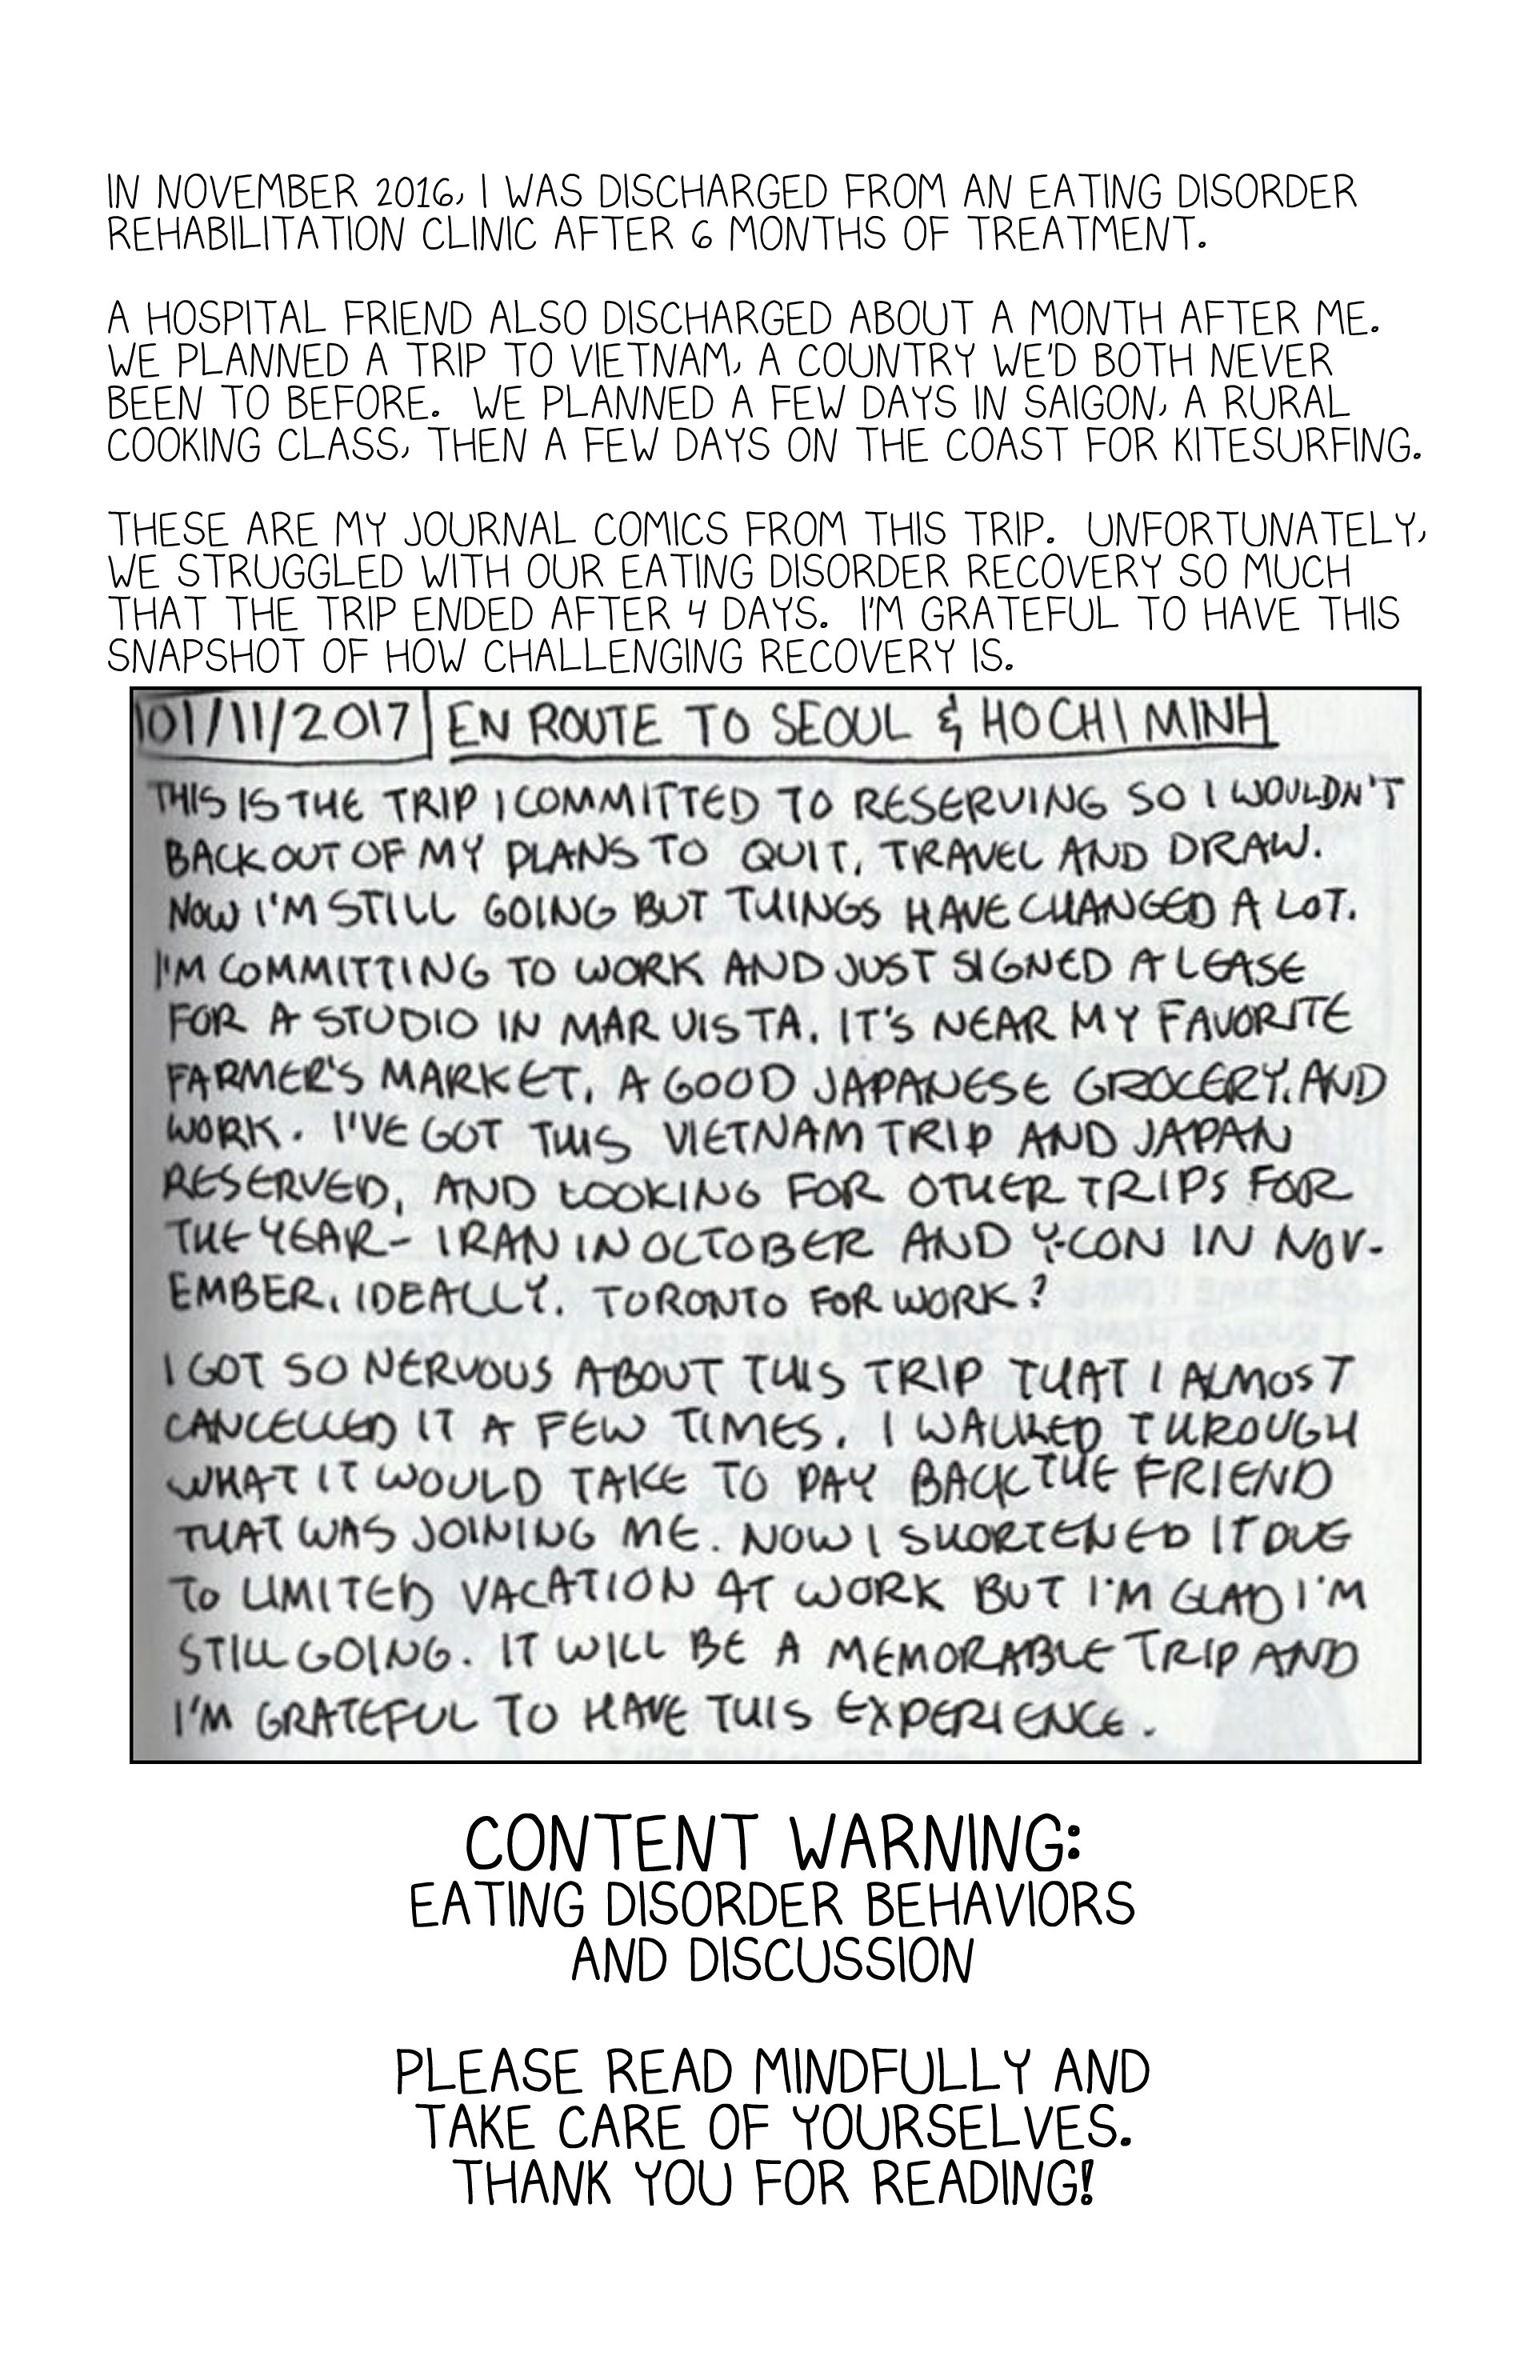 IN NOVEMBER 2016, I WAS DISCHARGED FROM AN EATING DISORDER
REHABILITATION CLINIC AFTER 6 MONTHS OF TREATMENT.
A HOSPITAL FRIEND ALSO DISCHARGED ABOUT A MONTH AFTER ME.
WE PLANNED A TRIP TO VIETNAM, A COUNTRY WE'D BOTH NEVER
BEEN TO BEFORE. WE PLANNED A FEW DAYS IN SAIGON, A RURAL
COOKING CLASS, THEN A FEW DAYS ON THE COAST FOR KITESURFING.
THESE ARE MY JOURNAL COMICS FROM THIS TRIP. UNFORTUNATELY,
WE STRUGGLED WITH OUR EATING DISORDER RECOVERY SO MUCH
THAT THE TRIP ENDED AFTER 4 DAYS. I'M GRATEFUL TO HAVE THIS
SNAPSHOT OF HOW CHALLENGING RECOVERY IS.
01/11/2017 EN ROUTE TO SEOUL & HO CHI MINH
THIS IS THE TRIP I COMMITTED TO RESERVING SO I WOULDN'T
BACK OUT OF MY PLANS TO QUIT, TRAVEL AND DRAW.
NOW I'M STILL GOING BUT THINGS HAVE CHANGED A LOT.
I'M COMMITTING TO WORK AND JUST SIGNED A LEASE
FOR A STUDIO IN MAR VISTA. IT'S NEAR MY FAVORITE
FARMER'S MARKET, A GOOD JAPANESE GROCERY, AND
WORK. I'VE GOT THIS VIETNAM TRIP AND JAPAN
RESERVED, AND LOOKING FOR OTHER TRIPS FOR
THE YEAR- IRAN IN OCTOBER AND Y-CON IN NOV-
EMBER, IDEALLY. TORONTO FOR WORK?
I GOT SO NERVOUS ABOUT THIS TRIP THAT I ALMOST
CANCELLED IT A FEW TIMES. I WALKED THROUGH
WHAT IT WOULD TAKE TO PAY BACK THE FRIEND
THAT WAS JOINING ME. NOW I SHORTENED IT DUE
TO LIMITED VACATION AT WORK BUT I'M GLAD I'M
STILL GOING. IT WILL BE A MEMORABLE TRIP AND
I'M GRATEFUL TO HAVE THIS EXPERIENCE.
CONTENT WARNING:
EATING DISORDER BEHAVIORS
AND DISCUSSION
PLEASE READ MINDFULLY AND
TAKE CARE OF YOURSELVES.
THANK YOU FOR READING!